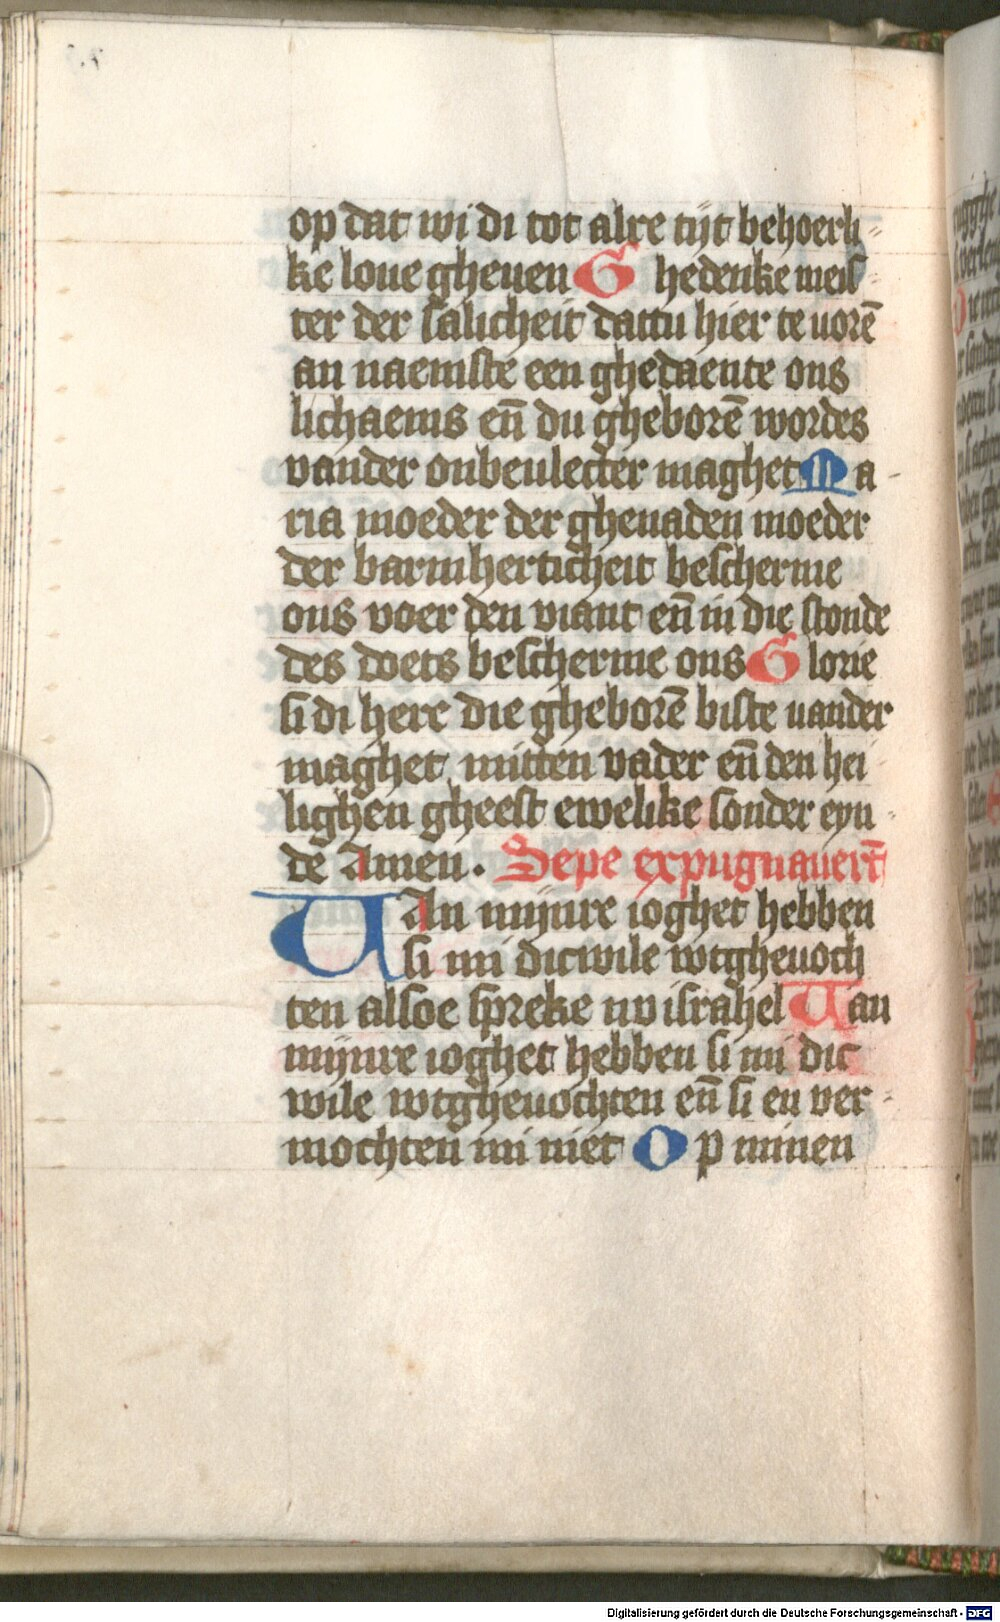 op dat wi di tot alre tijt behoerli-
ke loue gheuen Ghedenke meis
ter der salicheit dattu hier te uorē
an naemste een ghedaente ons
lichaems eñ du gheborē wordes
vander onbeulecter maghet Ma-
ria moeder der ghenaden moeder
der barmherticheit bescherme
ons voer den viant eñ in die stonde
des doets bescherme ons Glorie
si di here die gheborē biste uander
maghet mitten vader eñ den hei
lighen gheest ewelike sonder eyn-
de Amen. Sepe expugnauerūt
UAn mijnre ioghet hebben
si mi dicwile wtgheuoch
ten alsoe spreke nv israhel Uan
mijnre ioghet hebben si mi dic
wile wtgheuochten eñ si en ver-
mochten mi niet Op minen
Digitalisierung gefördert durch die Deutsche Forschungsgemeinschaft - DFG